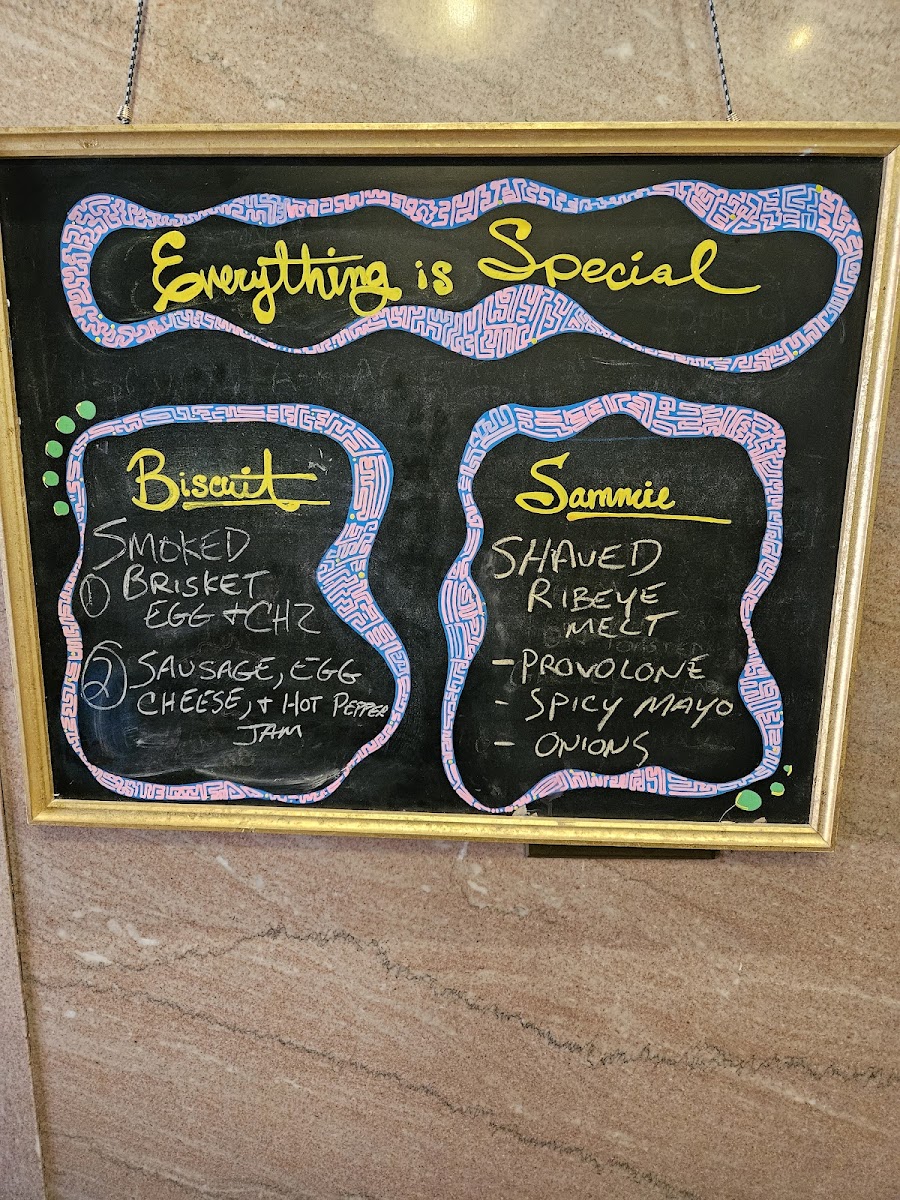 Everything is Special
Biscuit
SMOKED
① BRISKET
EGG + CHZ
② SAUSAGE, EGG
CHEESE, + HOT PEPPER
JAM
Sammie
SHAVED
RIBEYE
MELT
- PROVOLONE
- SPICY MAYO
- ONIONS